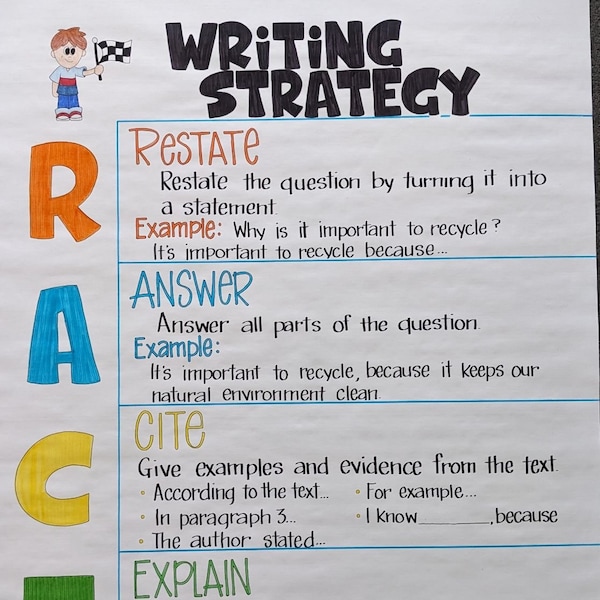 WRiTiNG
STRATEGY
R
RESTATE
Restate the question by turning it into
a statement.
Example: Why is it important to recycle?
It's important to recycle because...
A
ANSWER
Answer all parts of the question.
Example:
It's important to recycle, because it keeps our
natural environment clean.
C
CiTE
Give examples and evidence from the text.
• According to the text... • For example...
• In paragraph 3... • I know______, because
• The author stated...
EXPLAIN